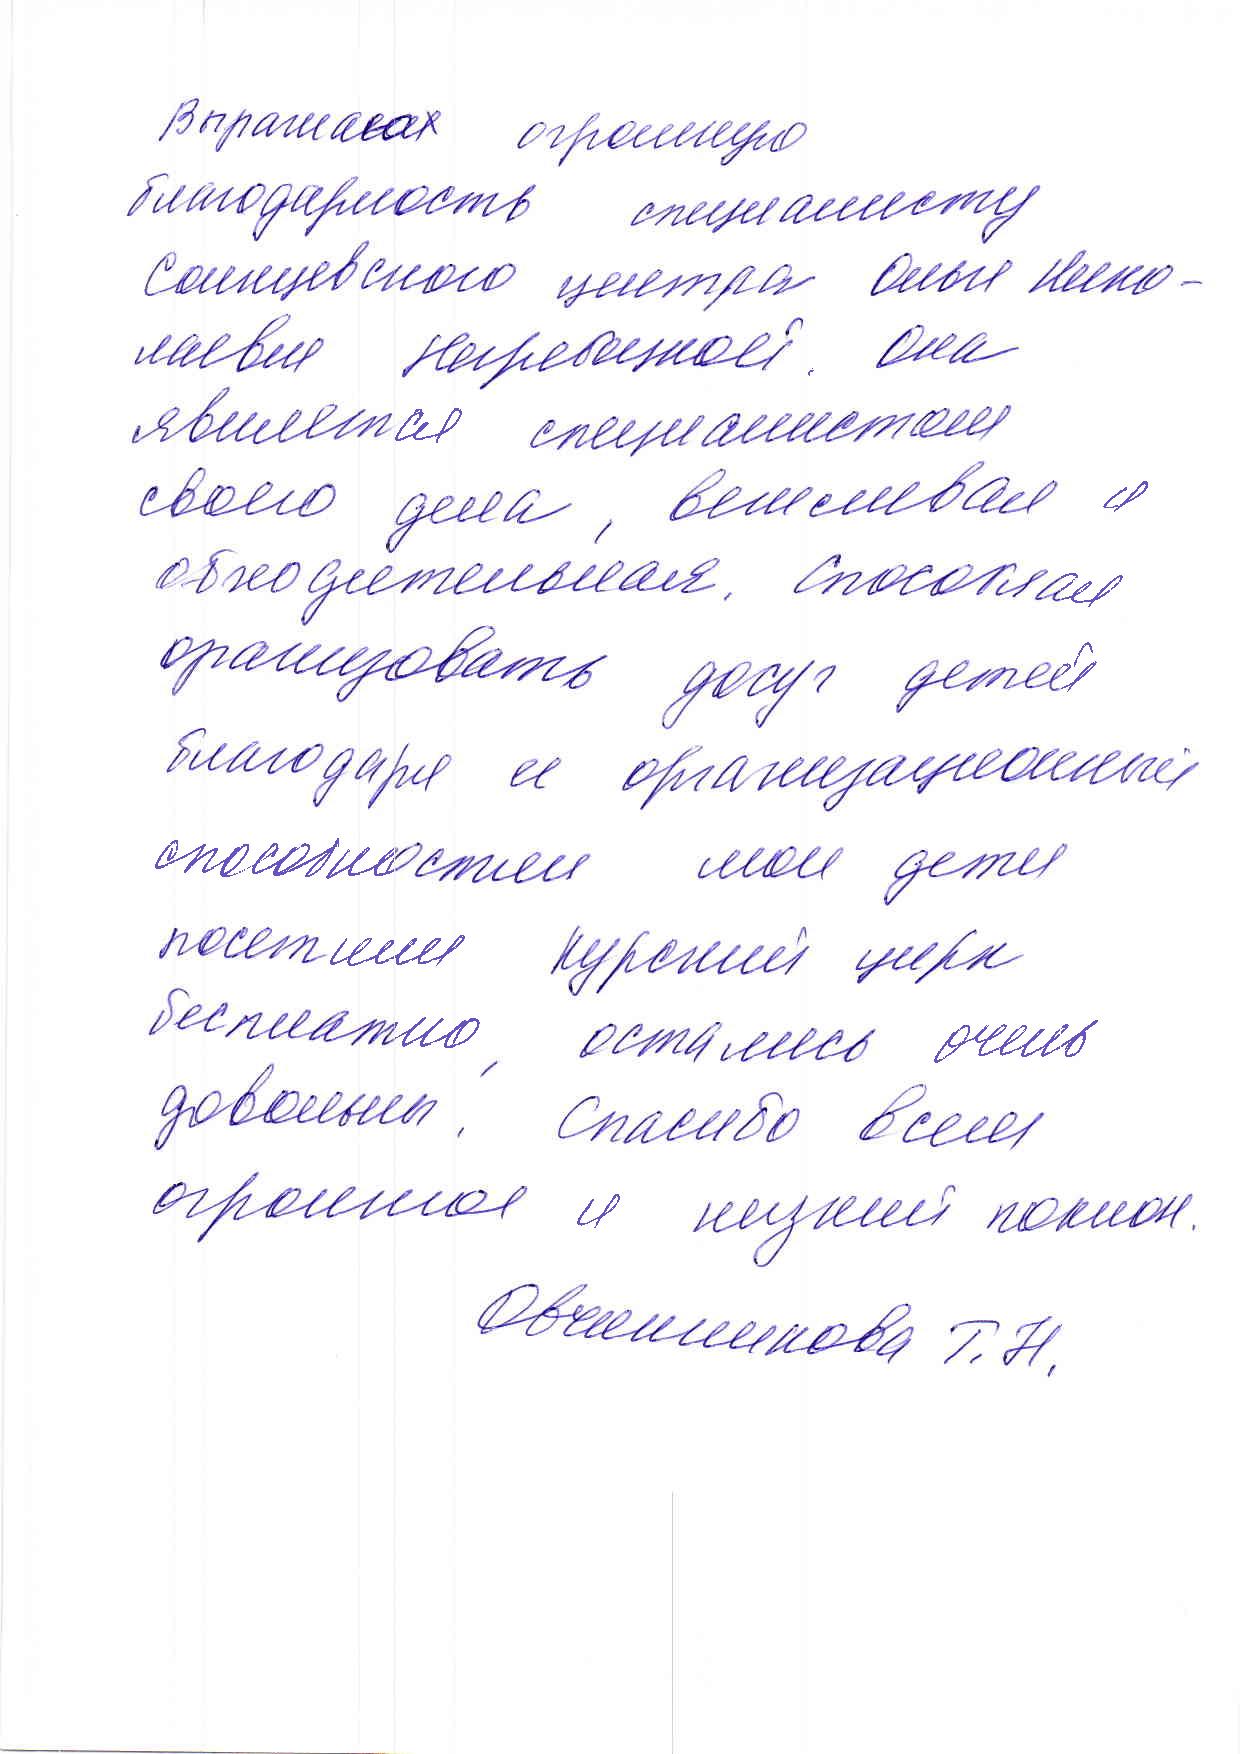 Выражаю огромную
благодарность специалисту
Солнцевского центра Ольги Нико-
лаевни Нарыжной. Она
является специалистом
своего дела, вежливая и
обходительная. Способная
оранизовать досуг детей
благодаря ее организационный
способностям мои дети
посетили Курский цирк
бесплатно, остались очень
довольны. Спасибо всем
огромное и низкий поклон.
Овчинникова Т.Н.